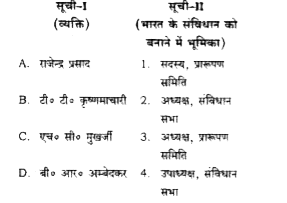 सूची-I सूची-II
(व्यक्ति) (भारत के संविधान को
बनाने में भूमिका)
A. राजेन्द्र प्रसाद 1. सदस्य, प्रारूपण
समिति
B. टी० टी० कृष्णमाचारी 2. अध्यक्ष, संविधान
सभा
C. एच० सी० मुखर्जी 3. अध्यक्ष, प्रारूपण
समिति
D. बी० आर० अम्बेदकर 4. उपाध्यक्ष, संविधान
सभा